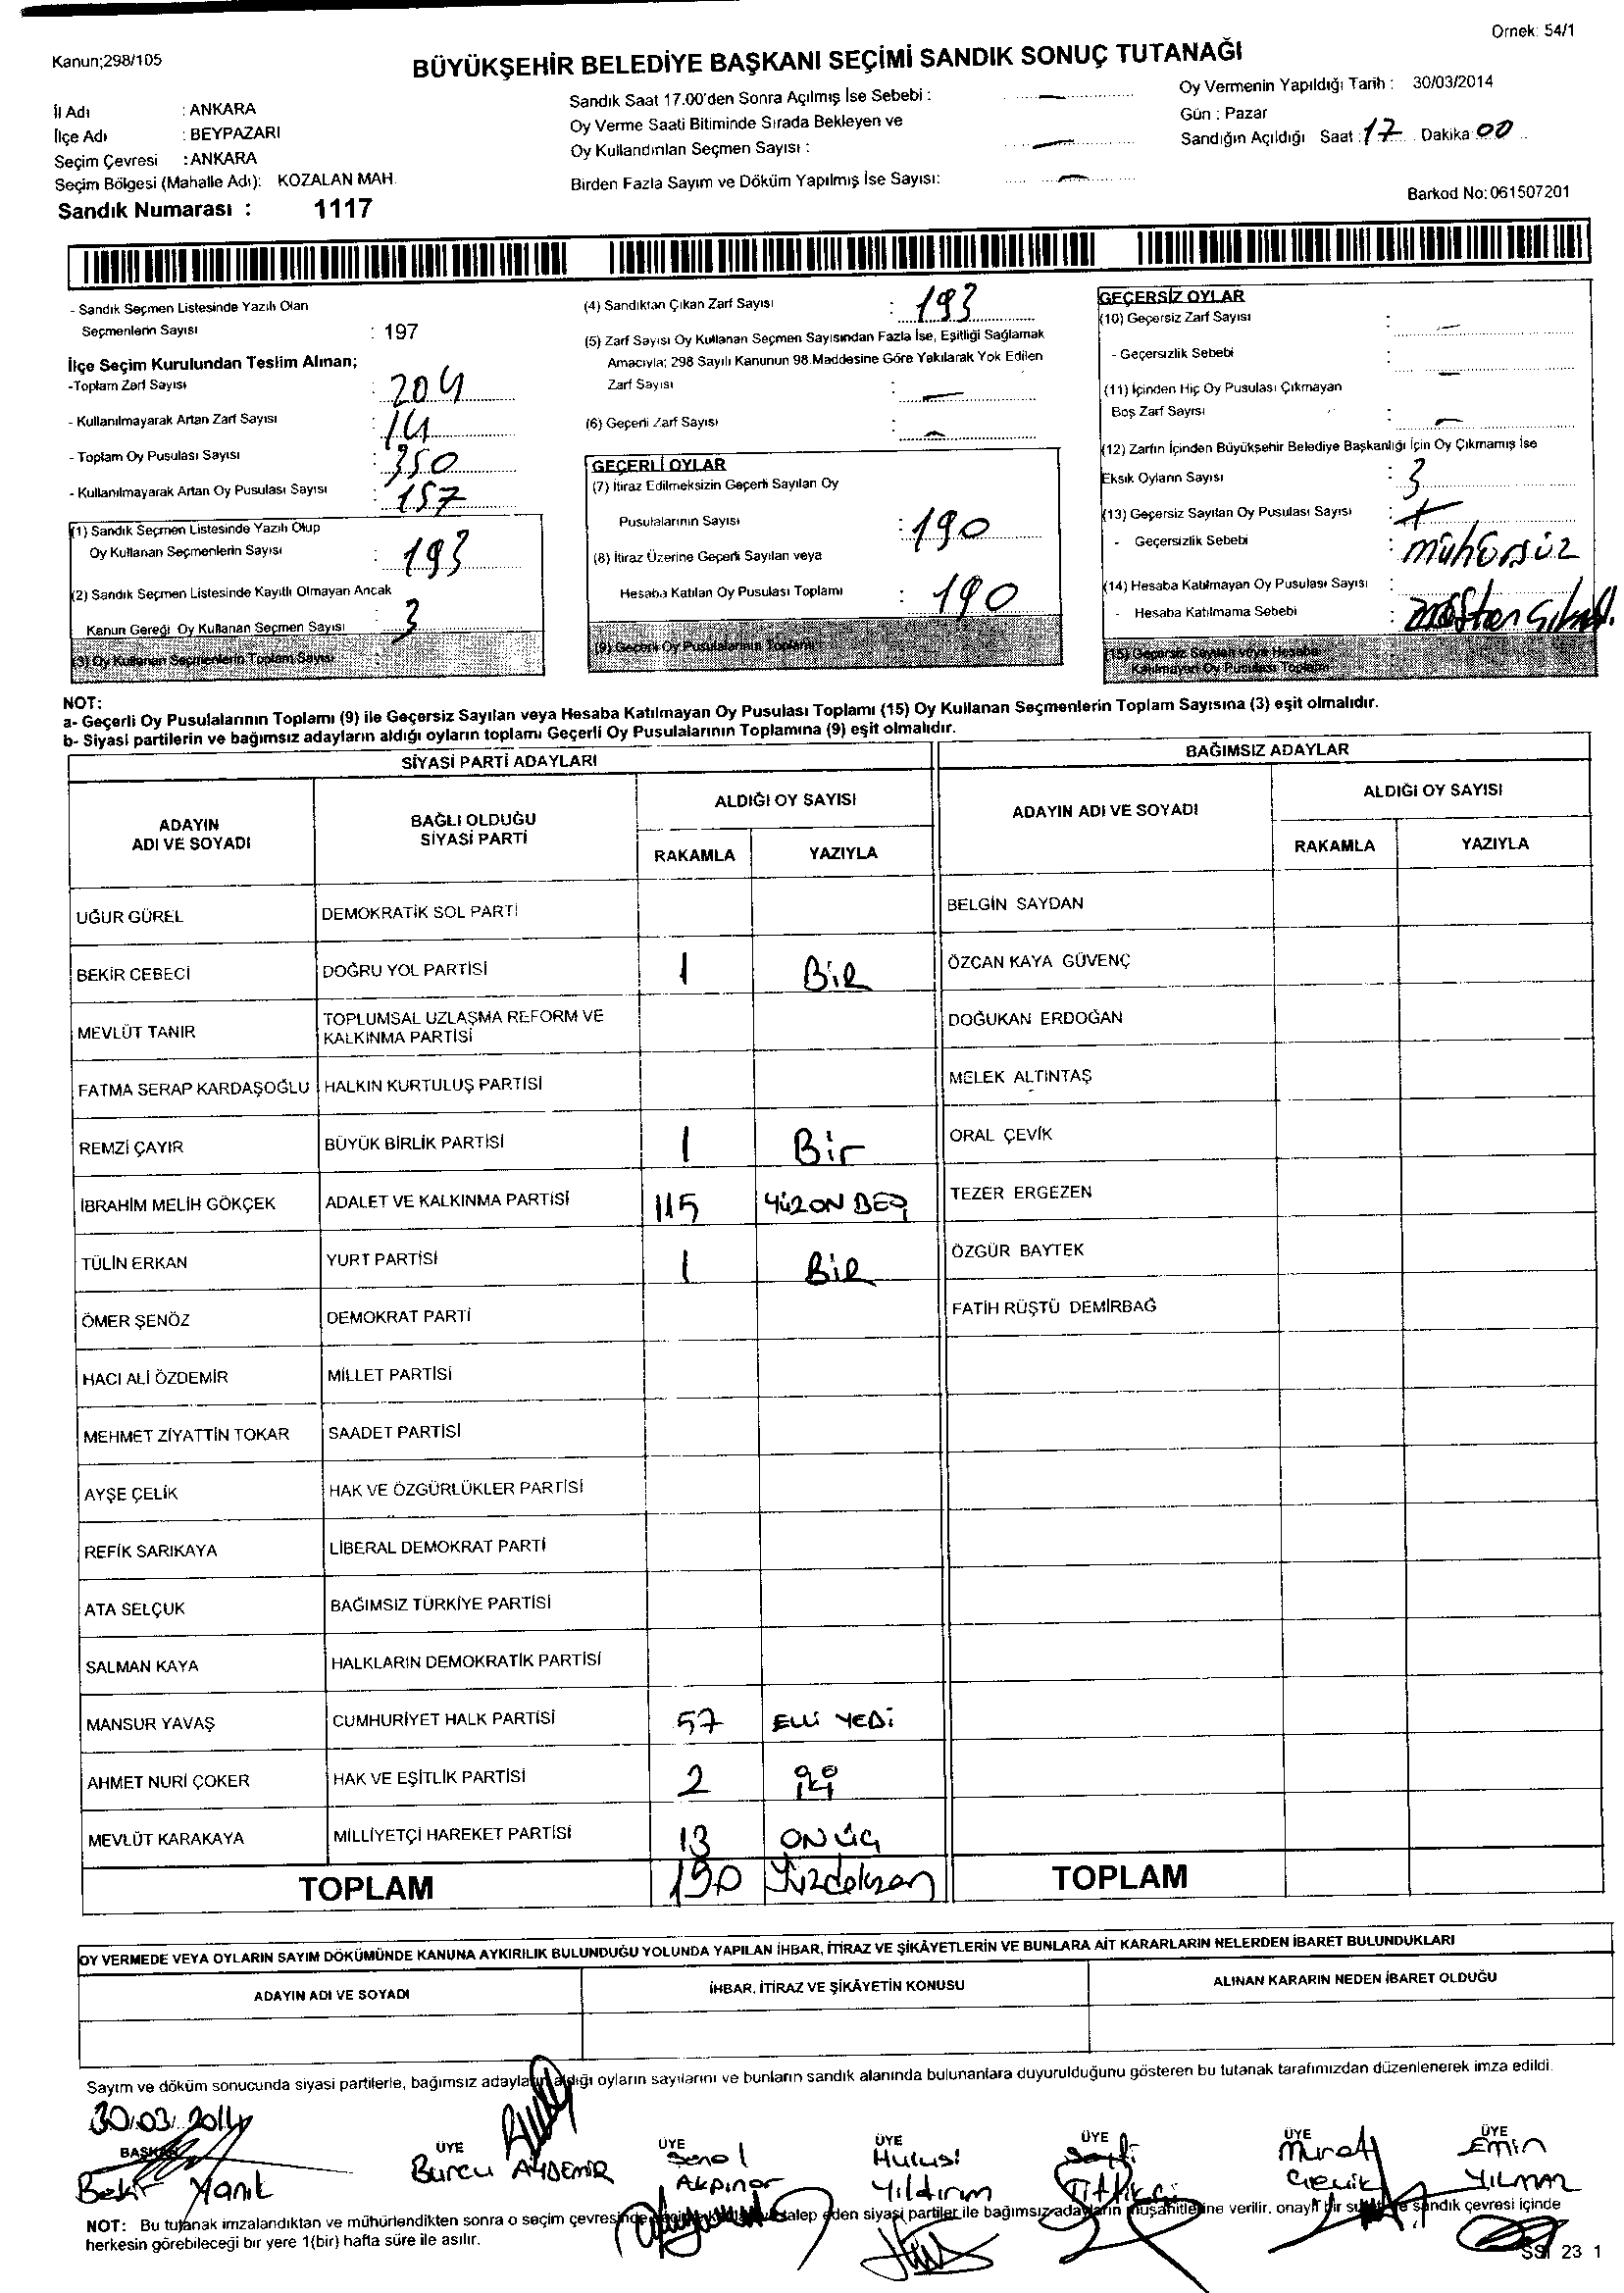 Kanun;298/105
Örnek: 54/1
BÜYÜKŞEHİR BELEDİYE BAŞKANI SEÇİMİ SANDIK SONUÇ TUTANAĞI
İl Adı : ANKARA
İlçe Adı : BEYPAZARI
Seçim Çevresi : ANKARA
Seçim Bölgesi (Mahalle Adı): KOZALAN MAH.
Sandık Numarası : 1117
Sandık Saat 17.00'den Sonra Açılmış İse Sebebi : —
Oy Verme Saati Bitiminde Sırada Bekleyen ve
Oy Kullandırılan Seçmen Sayısı : —
Birden Fazla Sayım ve Döküm Yapılmış İse Sayısı: —
Oy Vermenin Yapıldığı Tarih : 30/03/2014
Gün : Pazar
Sandığın Açıldığı Saat : 17 Dakika 00
Barkod No: 061507201
- Sandık Seçmen Listesinde Yazılı Olan
Seçmenlerin Sayısı : 197
İlçe Seçim Kurulundan Teslim Alınan;
-Toplam Zarf Sayısı : 204
- Kullanılmayarak Artan Zarf Sayısı : 14
- Toplam Oy Pusulası Sayısı : 350
- Kullanılmayarak Artan Oy Pusulası Sayısı : 157
(1) Sandık Seçmen Listesinde Yazılı Olup
Oy Kullanan Seçmenlerin Sayısı : 193
(2) Sandık Seçmen Listesinde Kayıtlı Olmayan Ancak
Kanun Gereği Oy Kullanan Seçmen Sayısı : 3
(3) Oy Kullanan Seçmenlerin Toplam Sayısı :
(4) Sandıktan Çıkan Zarf Sayısı : 193
(5) Zarf Sayısı Oy Kullanan Seçmen Sayısından Fazla İse, Eşitliği Sağlamak
Amacıyla; 298 Sayılı Kanunun 98.Maddesine Göre Yakılarak Yok Edilen
Zarf Sayısı : —
(6) Geçerli Zarf Sayısı : —
GEÇERLİ OYLAR
(7) İtiraz Edilmeksizin Geçerli Sayılan Oy
Pusulalarının Sayısı : 190
(8) İtiraz Üzerine Geçerli Sayılan veya
Hesaba Katılan Oy Pusulası Toplamı : 190
(9) Geçerli Oy Pusulalarının Toplamı
GEÇERSİZ OYLAR
(10) Geçersiz Zarf Sayısı : —
- Geçersizlik Sebebi :
(11) İçinden Hiç Oy Pusulası Çıkmayan
Boş Zarf Sayısı : —
(12) Zarfın İçinden Büyükşehir Belediye Başkanlığı İçin Oy Çıkmamış İse
Eksik Oyların Sayısı : 3
(13) Geçersiz Sayılan Oy Pusulası Sayısı :
- Geçersizlik Sebebi : mühürsüz
(14) Hesaba Katılmayan Oy Pusulası Sayısı :
- Hesaba Katılmama Sebebi :
(15) Geçersiz Sayılan veya Hesaba
Katılmayan Oy Pusulası Toplamı
NOT:
a- Geçerli Oy Pusulalarının Toplamı (9) ile Geçersiz Sayılan veya Hesaba Katılmayan Oy Pusulası Toplamı (15) Oy Kullanan Seçmenlerin Toplam Sayısına (3) eşit olmalıdır.
b- Siyasi partilerin ve bağımsız adayların aldığı oyların toplamı Geçerli Oy Pusulalarının Toplamına (9) eşit olmalıdır.
SİYASİ PARTİ ADAYLARI
BAĞIMSIZ ADAYLAR
ADAYIN ADI VE SOYADI
BAĞLI OLDUĞU SİYASİ PARTİ
ALDIĞI OY SAYISI
RAKAMLA YAZIYLA
ADAYIN ADI VE SOYADI
ALDIĞI OY SAYISI
RAKAMLA YAZIYLA
UĞUR GÜREL DEMOKRATİK SOL PARTİ BELGİN SAYDAN
BEKİR CEBECİ DOĞRU YOL PARTİSİ 1 BİR ÖZCAN KAYA GÜVENÇ
MEVLÜT TANIR TOPLUMSAL UZLAŞMA REFORM VE KALKINMA PARTİSİ DOĞUKAN ERDOĞAN
FATMA SERAP KARDAŞOĞLU HALKIN KURTULUŞ PARTİSİ MELEK ALTINTAŞ
REMZİ ÇAYIR BÜYÜK BİRLİK PARTİSİ 1 Bir ORAL ÇEVİK
İBRAHİM MELİH GÖKÇEK ADALET VE KALKINMA PARTİSİ 115 YÜZON BEŞ TEZER ERGEZEN
TÜLİN ERKAN YURT PARTİSİ 1 BİR ÖZGÜR BAYTEK
ÖMER ŞENÖZ DEMOKRAT PARTİ FATİH RÜŞTÜ DEMİRBAĞ
HACI ALİ ÖZDEMİR MİLLET PARTİSİ
MEHMET ZİYATTİN TOKAR SAADET PARTİSİ
AYŞE ÇELİK HAK VE ÖZGÜRLÜKLER PARTİSİ
REFİK SARIKAYA LİBERAL DEMOKRAT PARTİ
ATA SELÇUK BAĞIMSIZ TÜRKİYE PARTİSİ
SALMAN KAYA HALKLARIN DEMOKRATİK PARTİSİ
MANSUR YAVAŞ CUMHURİYET HALK PARTİSİ 57 ELLİ YEDİ
AHMET NURİ ÇOKER HAK VE EŞİTLİK PARTİSİ 2 İKİ
MEVLÜT KARAKAYA MİLLİYETÇİ HAREKET PARTİSİ 13 ON ÜÇ
TOPLAM 190 Yüzdoksan TOPLAM
OY VERMEDE VEYA OYLARIN SAYIM DÖKÜMÜNDE KANUNA AYKIRILIK BULUNDUĞU YOLUNDA YAPILAN İHBAR, İTİRAZ VE ŞİKÂYETLERİN VE BUNLARA AİT KARARLARIN NELERDEN İBARET BULUNDUKLARI
ADAYIN ADI VE SOYADI İHBAR, İTİRAZ VE ŞİKÂYETİN KONUSU ALINAN KARARIN NEDEN İBARET OLDUĞU
Sayım ve döküm sonucunda siyasi partilerle, bağımsız adayların aldığı oyların sayılarını ve bunların sandık alanında bulunanlara duyurulduğunu gösteren bu tutanak tarafımızdan düzenlenerek imza edildi.
30.03.2014
BAŞKAN ÜYE ÜYE ÜYE ÜYE ÜYE ÜYE
Bekir Yanık Burcu AYDEMİR Şenol Akpınar Hulusi Yıldırım Murat Çelik Emin YILMAZ
NOT: Bu tutanak imzalandıktan ve mühürlendikten sonra o seçim çevresinde talep eden siyasi partiler ile bağımsız adayların müşahitlerine verilir. onaylı bir sandık çevresi içinde
herkesin görebileceği bir yere 1(bir) hafta süre ile asılır.
23 1